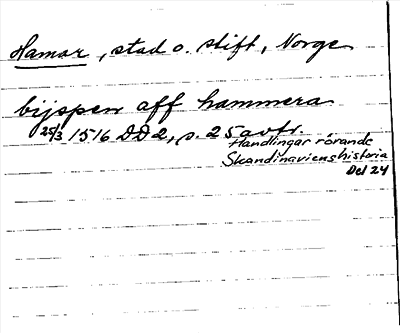 Hamar, stad o. stift, Norge
bijspen aff hammera
25/3 1516 DD2, s. 25 avtr.
Handlingar rörande
Skandinaviens historia
Del 24